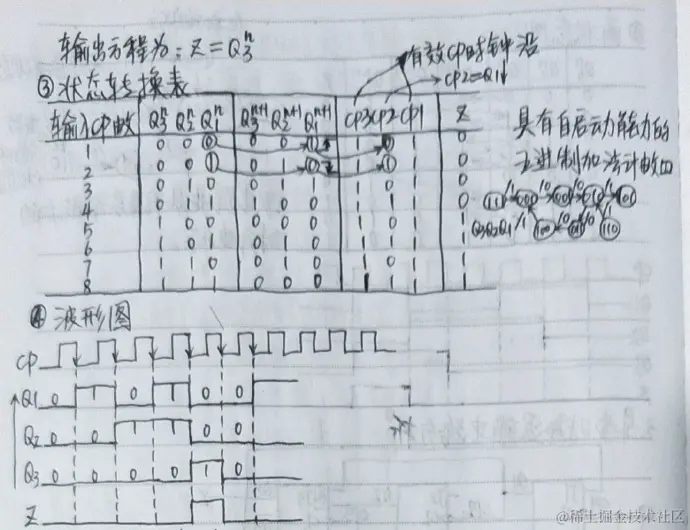 输出方程为: Z = Q₃ⁿ
有效CP时钟沿
CP2=Q1↓
③ 状态转换表
输入CP数 Q₃ⁿ Q₂ⁿ Q₁ⁿ Q₃ⁿ⁺¹ Q₂ⁿ⁺¹ Q₁ⁿ⁺¹ CP3 CP2 CP1 Z
1 0 0 0 0 0 1 1 0 1 0
2 0 0 1 0 1 0 1 1 1 0
3 0 1 0 0 1 1 1 0 1 0
4 0 1 1 1 0 0 1 1 1 0
5 1 0 0 0 0 0 1 0 1 1
6 1 0 1 0 1 0 1 1 1 1
7 1 1 0 0 1 0 1 0 1 1
8 1 1 1 0 0 0 1 1 1 1
具有自启动能力的
五进制加法计数
Q3Q2Q1
④ 波形图
CP
Q1 0 1 0 1 0 0
Q2 0 0 1 1 0 0
Q3 0 0 0 0 1 0
Z
@稀土掘金技术社区